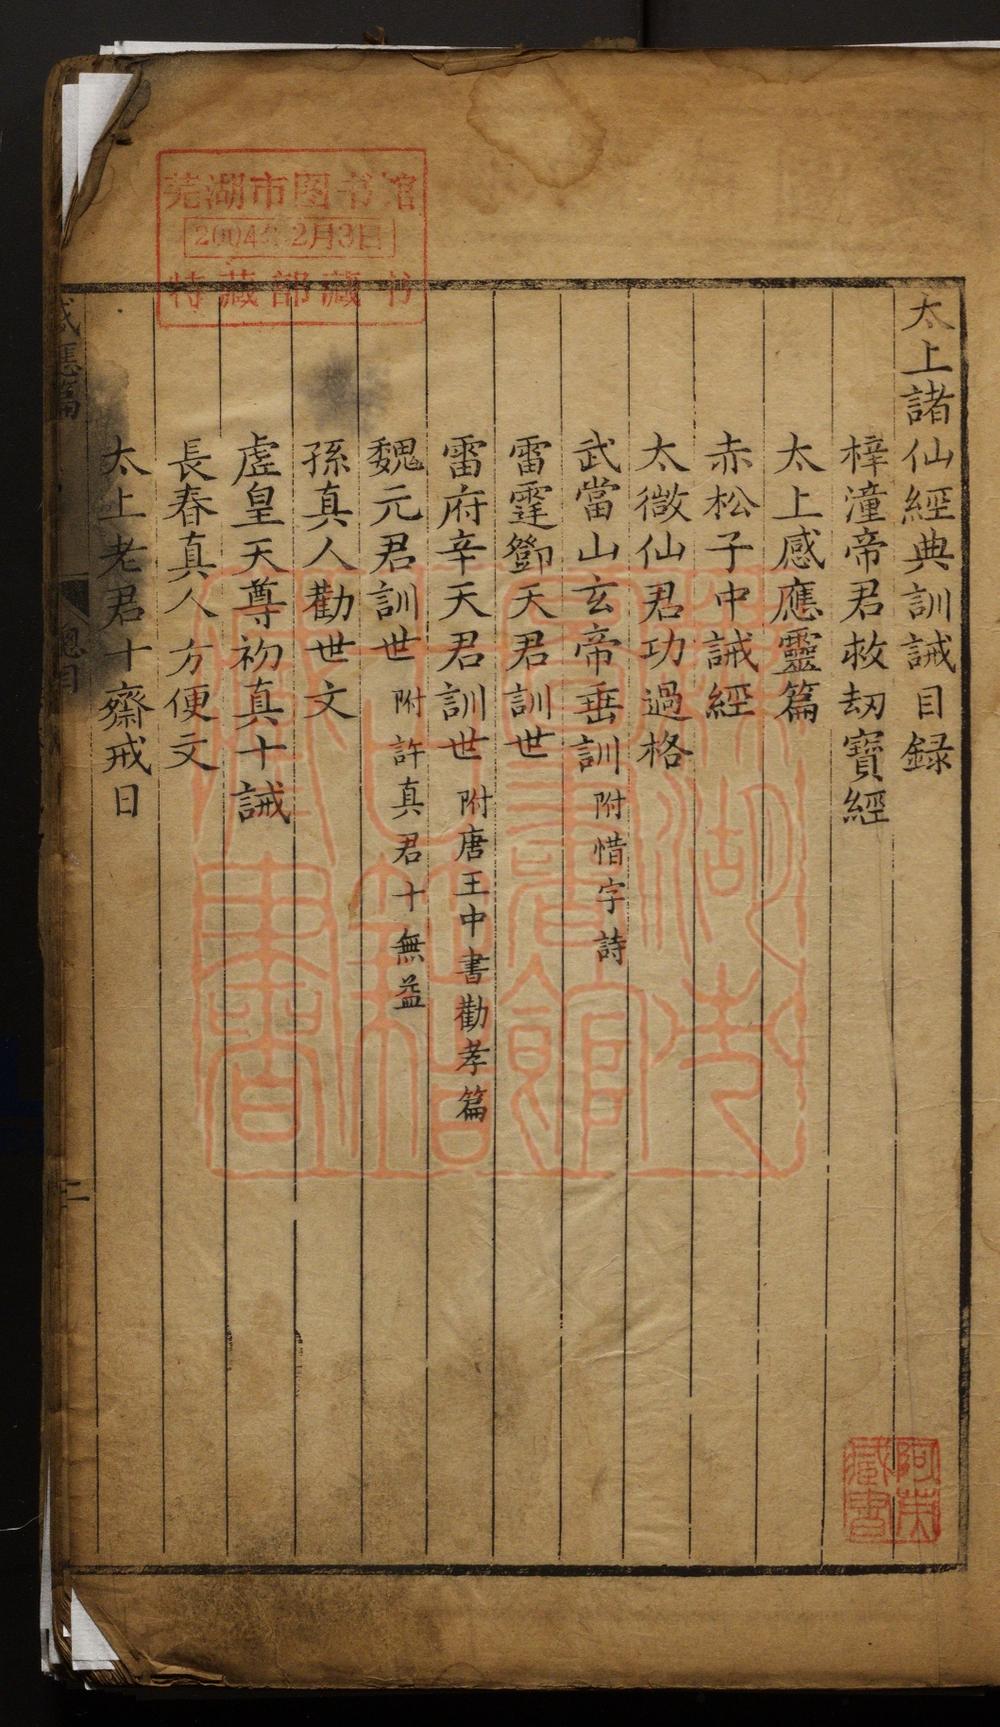 太上諸仙經典訓誡目録
梓潼帝君救刼寶經
太上感應靈篇
赤松子中誡經
太微仙君功過格
武當山玄帝垂訓 附惜字詩
雷霆鄧天君訓世
雷府辛天君訓世 附唐王中書勸孝篇
魏元君訓世 附許真君十無益
孫真人勸世文
虛皇天尊初真十誡
長春真人方便文
太上老君十齋戒日
感應篇
總目
二
芜湖市图书馆
2004年2月3日
特藏部藏书
阿英藏書